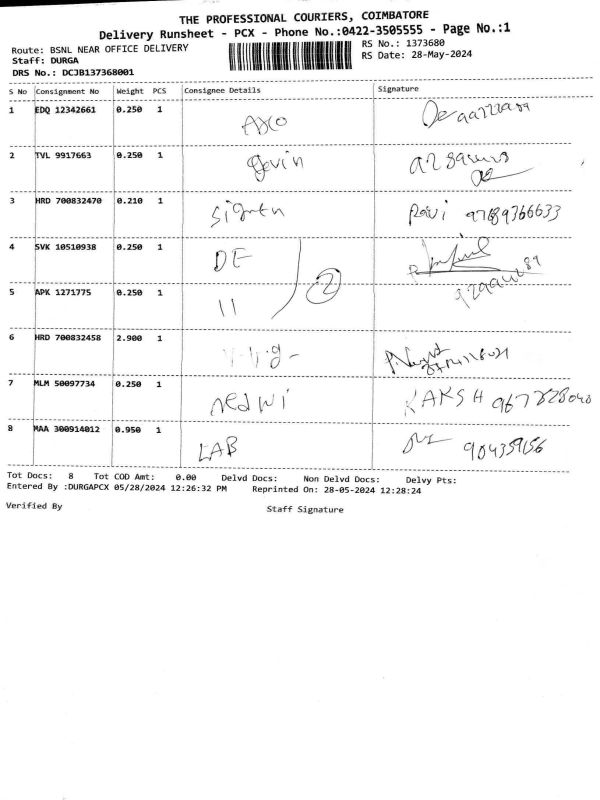 THE PROFESSIONAL COURIERS, COIMBATORE
Delivery Runsheet - PCX - Phone No.:0422-3505555 - Page No.:1
Route: BSNL NEAR OFFICE DELIVERY
RS No.: 1373680
Staff: DURGA
RS Date: 28-May-2024
DRS No.: DCJB137368001
S No Consignment No Weight PCS Consignee Details Signature
1 EDQ 12342661 0.250 1
2 TVL 9917663 0.250 1 Gevin
3 HRD 700832470 0.210 1 Ravi 97689366633
4 SVK 10510938 0.250 1 DE 2
5 APK 1271775 0.250 1 11
6 HRD 700832458 2.900 1
7 MLM 50097734 0.250 1 KAKSH
8 MAA 300914012 0.950 1 LAB 904359156
Tot Docs: 8 Tot COD Amt: 0.00 Delvd Docs: Non Delvd Docs: Delvy Pts:
Entered By :DURGAPCX 05/28/2024 12:26:32 PM Reprinted On: 28-05-2024 12:28:24
Verified By
Staff Signature